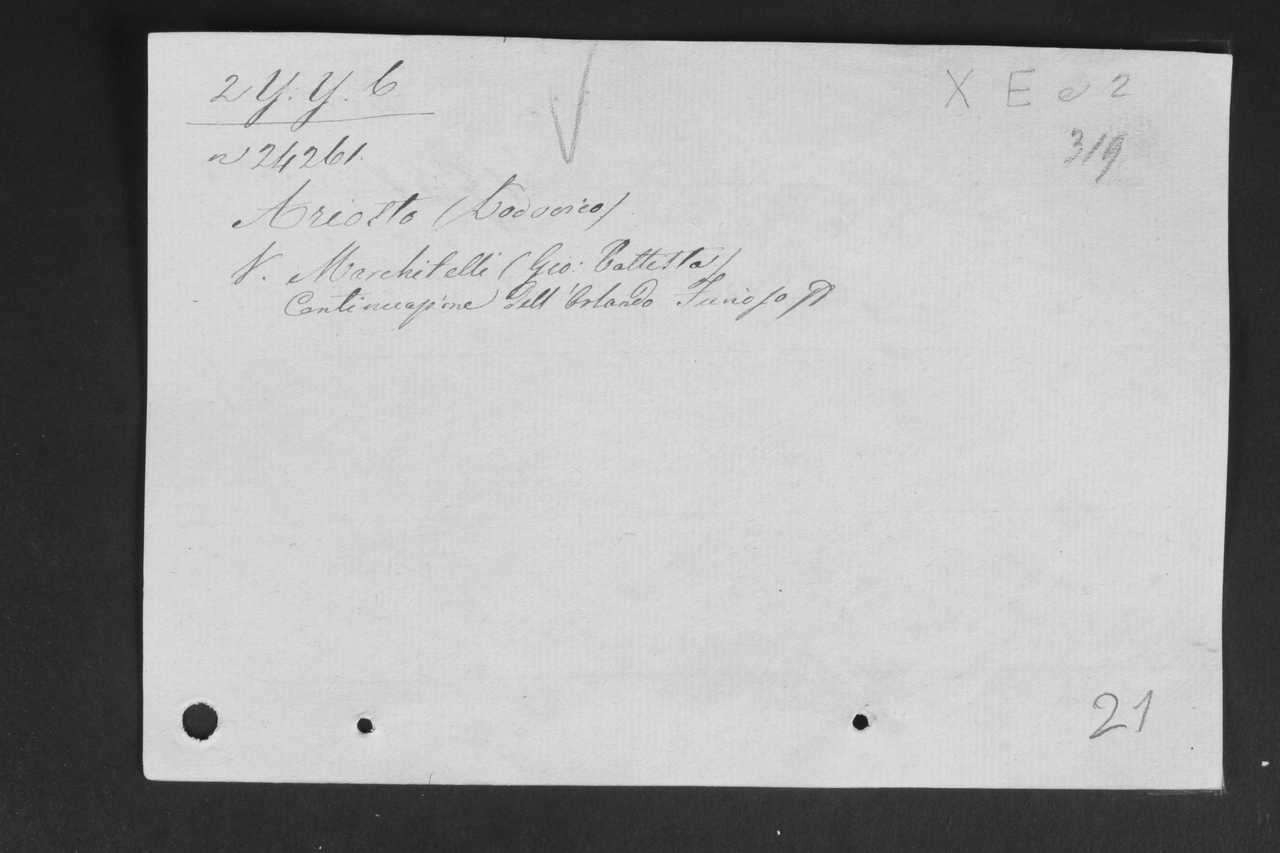 2 Y. Y. 6
X E 2
n 24261.
319
Ariosto (Lodovico)
V. Marchitelli (Gio: Battista)
Continuazione dell'Orlando Furioso
21